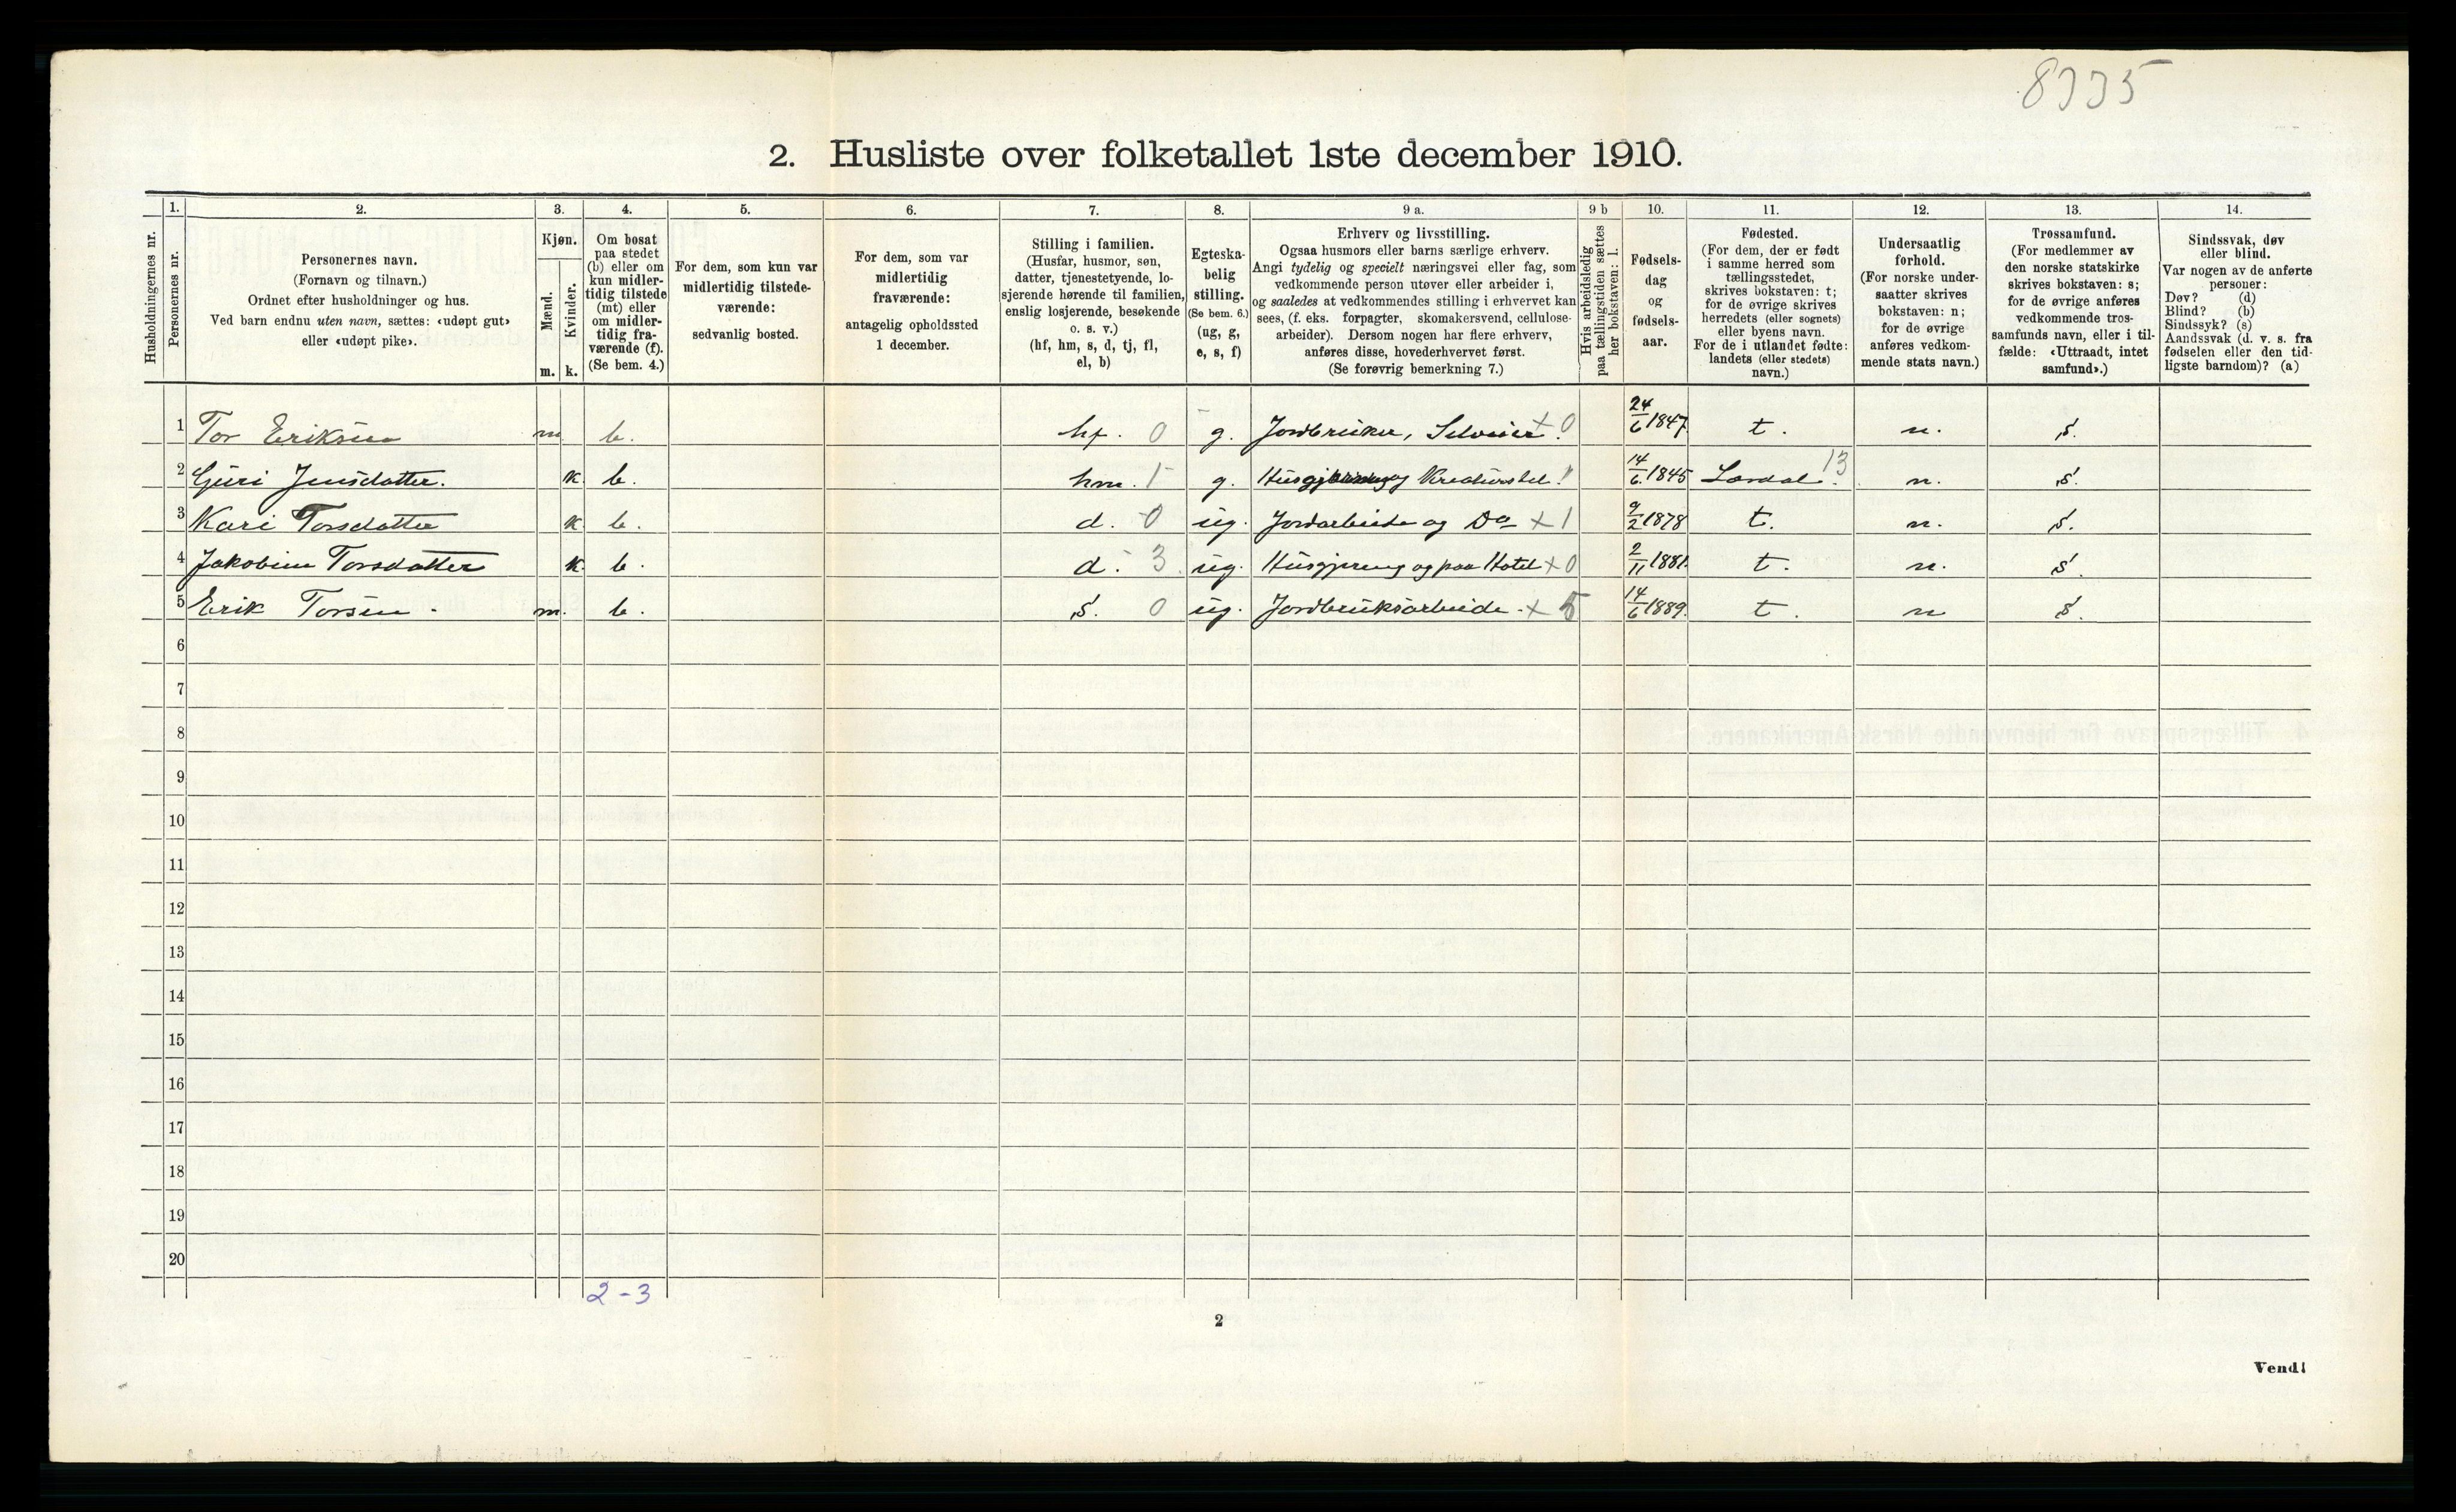 8335
2. Husliste over folketallet 1ste december 1910.
Husholdningernes nr.
1.
Personernes nr.
2.
Personernes navn.
(Fornavn og tilnavn.)
Ordnet efter husholdninger og hus.
Ved barn endnu uten navn, sættes: «udøpt gut»
eller «udøpt pike».
3.
Kjøn.
Mænd.
Kvinder.
m. k.
4.
Om bosat
paa stedet
(b) eller om
kun midler-
tidig tilstede
(mt) eller
om midler-
tidig fra-
værende (f).
(Se bem. 4.)
5.
For dem, som kun var
midlertidig tilstede-
værende:
sedvanlig bosted.
6.
For dem, som var
midlertidig
fraværende:
antagelig opholdssted
1 december.
7.
Stilling i familien.
(Husfar, husmor, søn,
datter, tjenestetyende, lo-
sjerende hørende til familien,
enslig losjerende, besøkende
o. s. v.)
(hf, hm, s, d, tj, fl,
el, b)
8.
Egteska-
belig
stilling.
(Se bem. 6.)
(ug, g,
e, s, f)
9 a.
Erhverv og livsstilling.
Ogsaa husmors eller barns særlige erhverv.
Angi tydelig og specielt næringsvei eller fag, som
vedkommende person utøver eller arbeider i,
og saaledes at vedkommendes stilling i erhvervet kan
sees, (f. eks. forpagter, skomakersvend, cellulose-
arbeider). Dersom nogen har flere erhverv,
anføres disse, hovederhvervet først.
(Se forøvrig bemerkning 7.)
9 b
Hvis arbeidsledig
paa tællingstiden sættes
her bokstaven: l.
10.
Fødsels-
dag
og
fødsels-
aar.
11.
Fødested.
(For dem, der er født
i samme herred som
tællingsstedet,
skrives bokstaven: t;
for de øvrige skrives
herredets (eller sognets)
eller byens navn.
For de i utlandet fødte:
landets (eller stedets)
navn.)
12.
Undersaatlig
forhold.
(For norske under-
saatter skrives
bokstaven: n;
for de øvrige
anføres vedkom-
mende stats navn.)
13.
Trossamfund.
(For medlemmer av
den norske statskirke
skrives bokstaven: s;
for de øvrige anføres
vedkommende tros-
samfunds navn, eller i til-
fælde: «Uttraadt, intet
samfund».)
14.
Sindssvak, døv
eller blind.
Var nogen av de anførte
personer:
Døv? (d)
Blind? (b)
Sindssyk? (s)
Aandssvak (d. v. s. fra
fødselen eller den tid-
ligste barndom)? (a)
1 Tor Eriksen m b. hf. 0 g. Jordbruker, Selveier x 0 24/6 1847 t. n. s.
2 Guri Jensdatter. k b. hm. 1 g. Husgjerning og Kreaturstel 14/6 1845 Lardal 13 n. s.
3 Kari Torsdatter k. b. d. 0 ug. Jordarbeide og Do x 1 9/2 1878 t. n. s.
4 Jakobine Torsdatter k. b. d. 3 ug. Husgjerning og paa Hotel x 0 2/11 1881. t. n. s.
5 Erik Torsen m. b. s. 0 ug. Jordbruksarbeide x 5 14/6 1889. t. n s.
6
7
8
9
10
11
12
13
14
15
16
17
18
19
20
2-3
2
Vend!